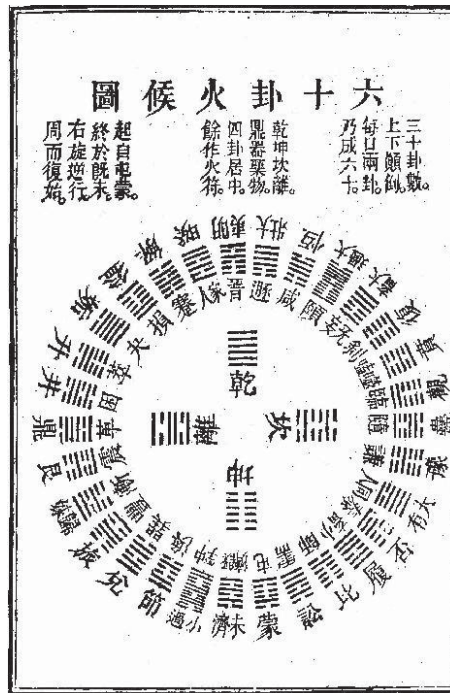 六十卦火候圖
三十卦數。
上下顛倒。
每日兩卦。
乃成六十。
乾坤坎離。
鼎器藥物。
四卦居中。
餘作火符。
起自屯蒙。
終於既未。
右旋逆行。
周而復始。
乾
坎
坤
離
屯
蒙
需
訟
師
比
小畜
履
泰
否
同人
大有
謙
豫
隨
蠱
臨
觀
噬嗑
賁
剝
復
无妄
大畜
頤
大過
咸
恒
遯
大壯
晉
明夷
家人
睽
蹇
解
損
益
夬
姤
萃
升
困
井
革
鼎
震
艮
漸
歸妹
豐
旅
巽
兌
渙
節
中孚
小過
既濟
未濟